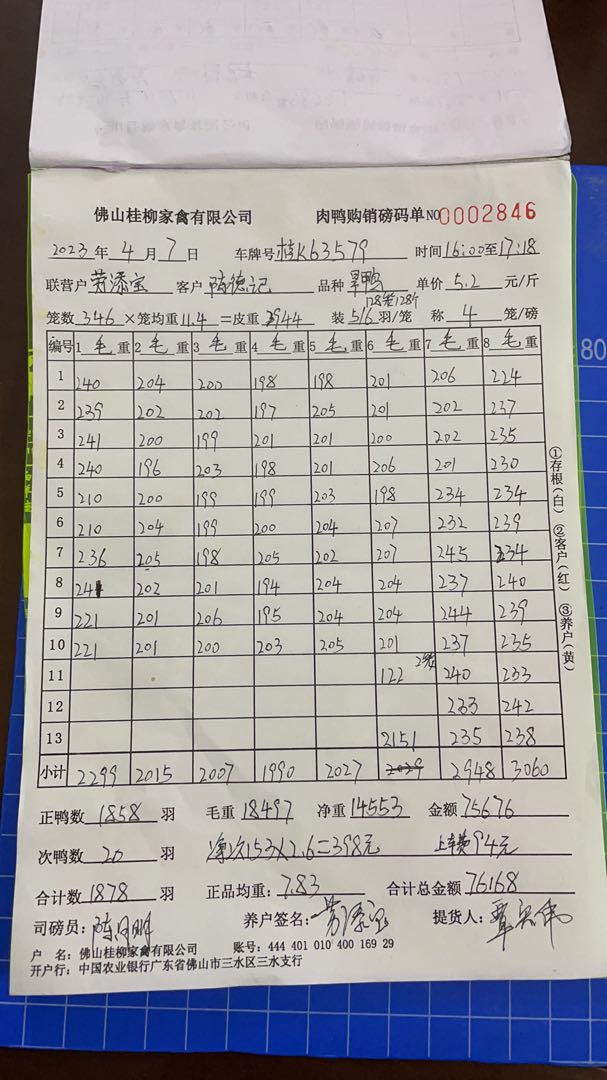 佛山桂柳家禽有限公司 肉鸭购销磅码单 NO 0002846
2023年4月7日 车牌号 桂K63579 时间16:00至17:18
联营户 劳添宝 客户 陆德记 品种 鸭 单价 5.2 元/斤
128个
笼数 346 ×笼均重 11.4 =皮重 3944 装 5/6 羽/笼 称 4 笼/磅
编号 1 毛重 2 毛重 3 毛重 4 毛重 5 毛重 6 毛重 7 毛重 8 毛重
1 240 204 200 198 198 201 206 224
2 239 202 202 197 205 201 202 237
3 241 200 199 201 201 200 202 235
4 240 196 203 198 201 206 201 230
5 210 200 199 199 203 198 234 234
6 210 204 199 200 204 207 232 239
7 236 205 198 205 202 207 245 234
8 241 202 201 194 204 204 237 240
9 221 201 206 195 204 204 244 239
10 221 201 200 203 205 201 237 235
11 122 2笼 240 233
12 233 242
13 2151 235 238
小计 2299 2015 2007 1990 2027 2029 2948 3060
①存根(白) ②客户(红) ③养户(黄)
正鸭数 1858 羽 毛重 18497 净重 14553 金额 75676
次鸭数 20 羽 净次153×2.6=398元 上车费94元
合计数 1878 羽 正品均重: 7.83 合计总金额 76168
司磅员: 养户签名: 劳添宝 提货人:
户 名: 佛山桂柳家禽有限公司 账号: 444 401 010 400 169 29
开户行: 中国农业银行广东省佛山市三水区三水支行
80